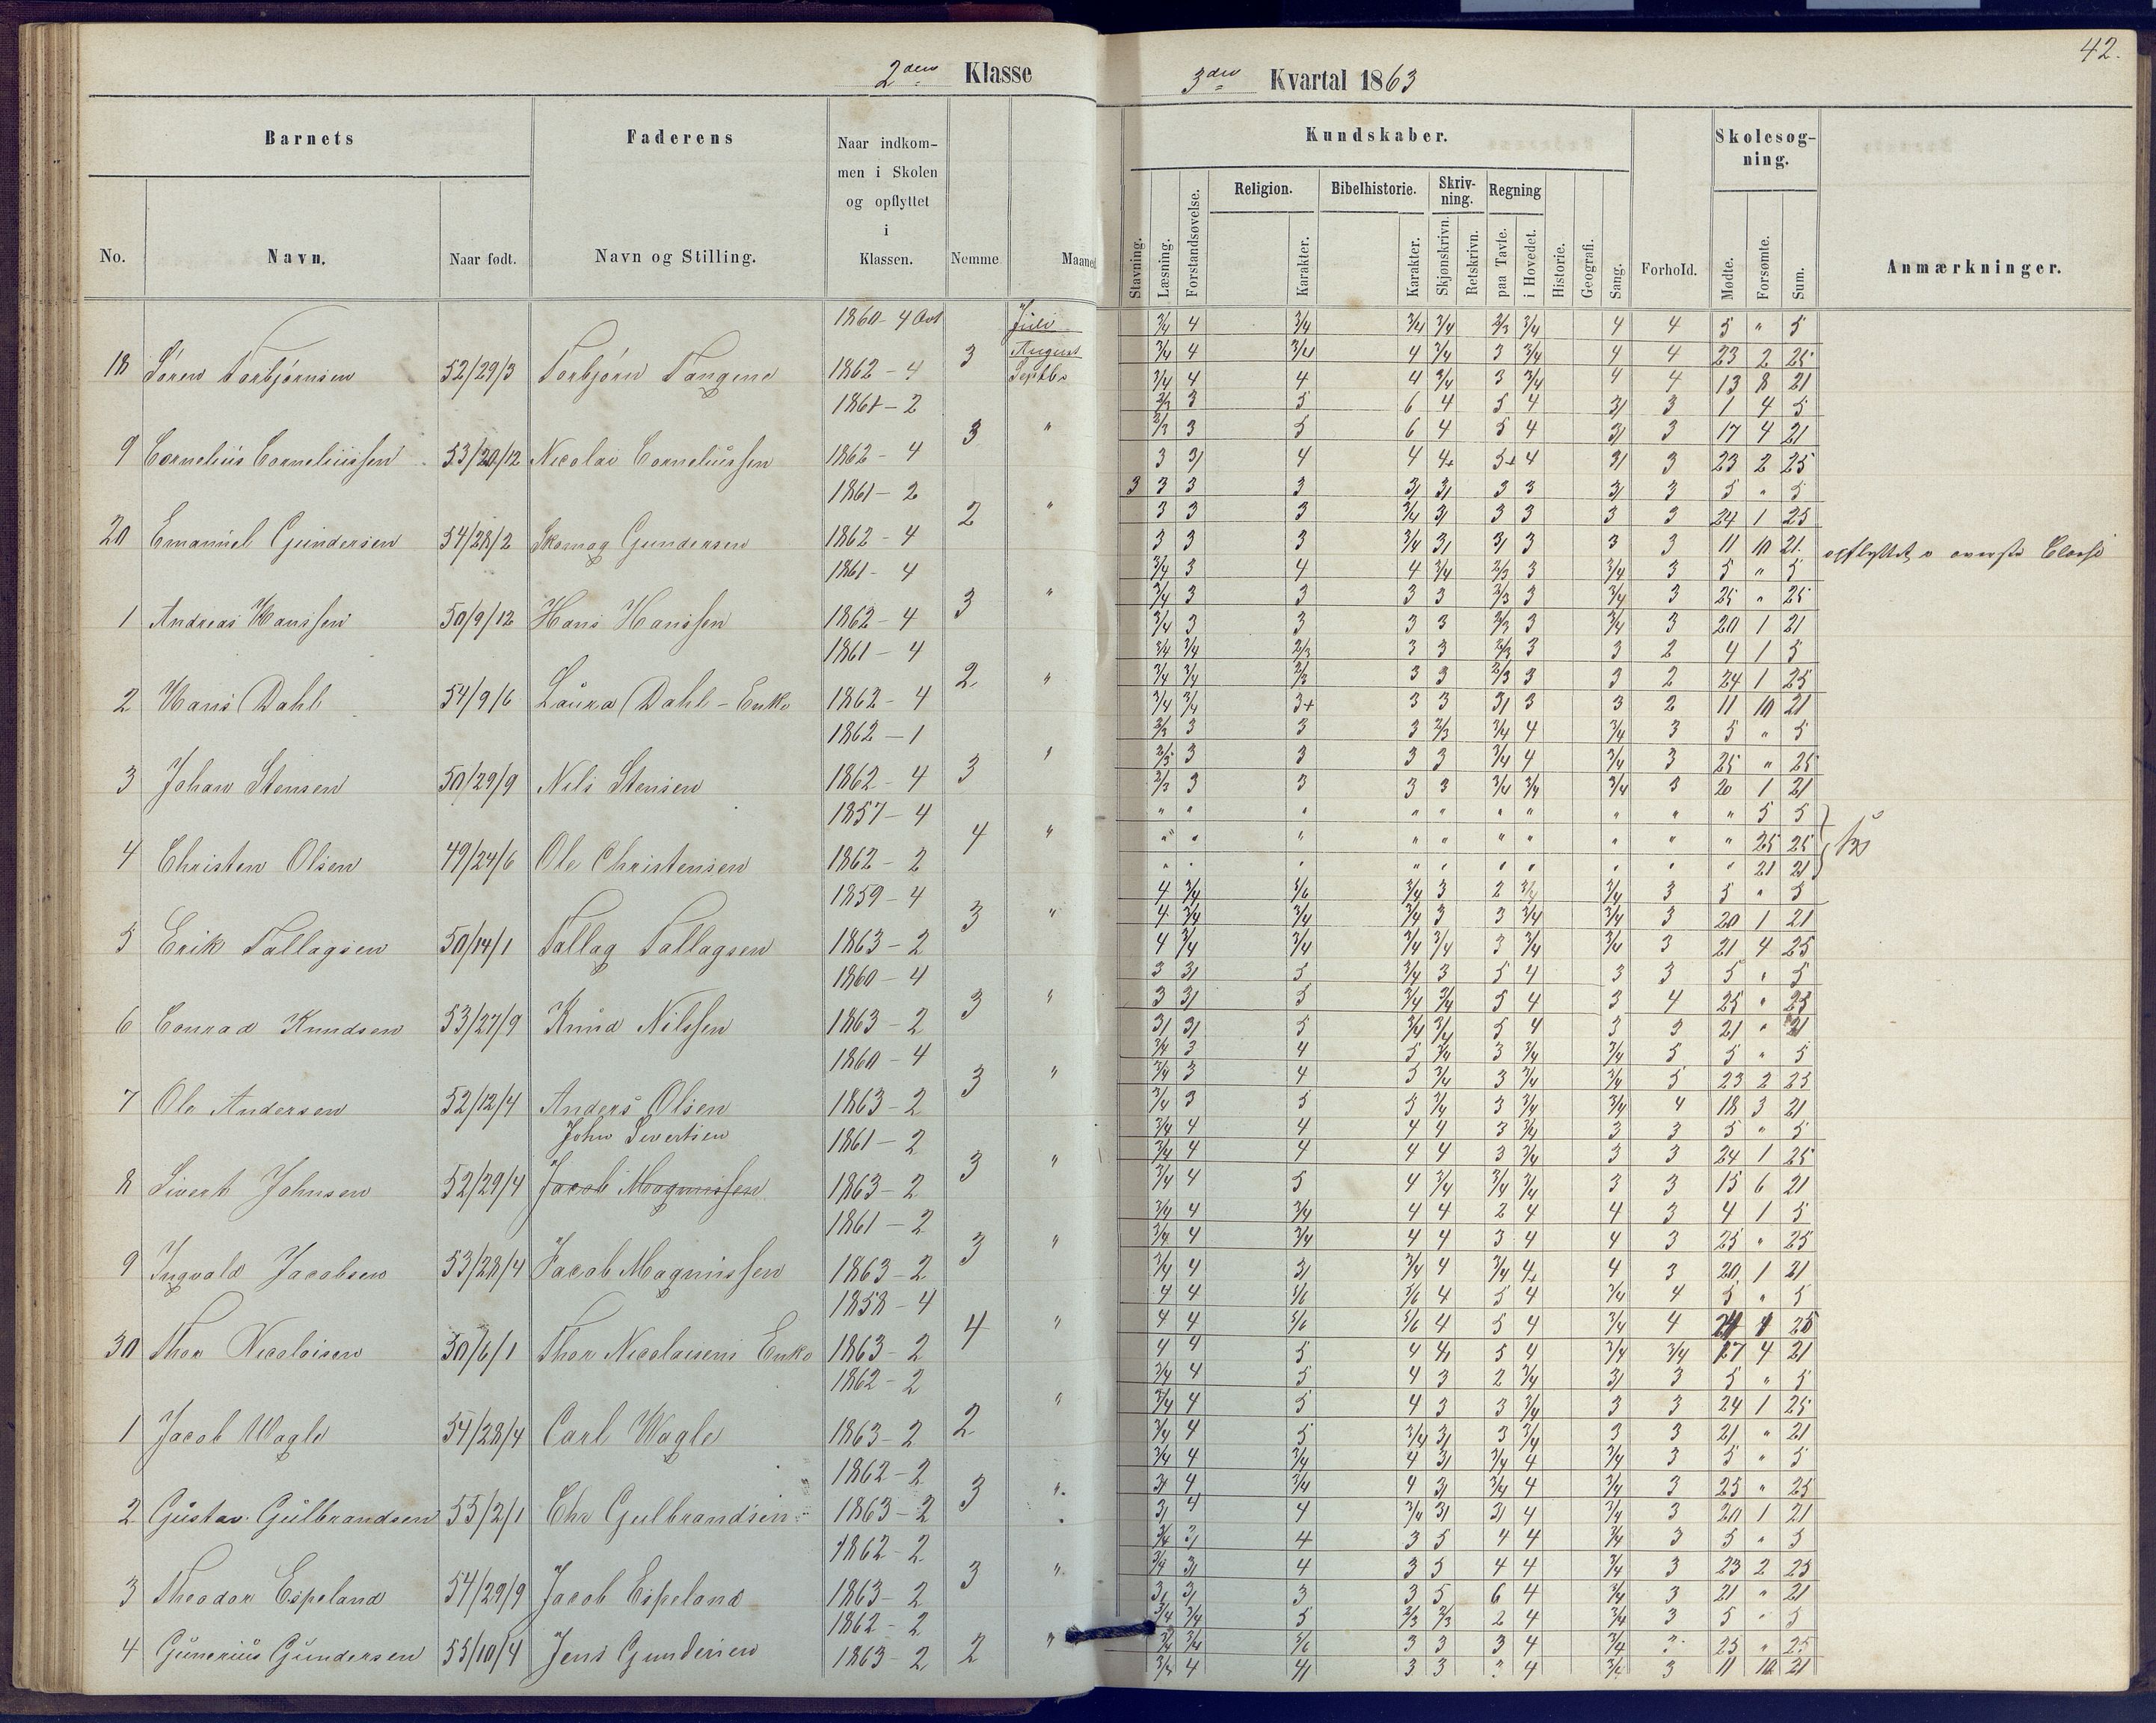 42.
2den Klasse
3die Kvartal 1863
Barnets
Faderens
Naar indkommen i Skolen og opflyttet i Klassen.
Kundskaber.
Skolesøgning.
No.
Navn.
Naar født.
Navn og Stilling.
Nemme
Maaned
Stavning.
Læsning.
Forstandsøvelse.
Religion.
Karakter.
Bibelhistorie.
Karakter.
Skrivning.
Skjønskrivn.
Retskrivn.
Regning
paa Tavle.
i Hovedet.
Historie.
Geografi.
Sang.
Forhold.
Mødte.
Forsømte.
Sum.
Anmærkninger.
1860 - 4 Juli 3/4 4 3/4 3/4 3/4 2/3 3/4 4 4 5 " 5
18 Sören Torbjörnsen 52/29/3 Torbjörn Tangene 1862 - 4 3 August 3/4 4 3/4 4 3/4 3 3/4 4 4 23 2 25
Septbr 3/4 4 4 4 3/4 3 3/4 4 4 13 8 21
1861 - 2 2/3 3 5 6 4 5 4 3/ 3 1 4 5
9 Cornelius Corneliussen 53/20/12 Nicolai Corneliussen 1862 - 4 3 " 2/3 3 5 6 4 5 4 3/ 3 17 4 21
3 3/ 4 4 4+ 5+ 4 3/ 3 23 2 25
1861 - 2 3 3 3 3 3/ 3/ 3 3 3/ 3 5 " 5
20 Emanuel Gundersen 54/28/2 Skomag Gundersen 1862 - 4 2 " 3 3 3 3/4 3/ 3 3 3 3 24 1 25
3 3 3 3/4 3/ 3/ 3 3 3 11 10 21. opflyttet i øverste Classe
1861 - 4 3/4 3 4 4 3/4 2/3 3 3/4 3 5 " 5
1 Andreas Hanssen 50/9/12 Hans Hanssen 1862 - 4 3 " 3/4 3 3 3 3 2/3 3 3/4 3 25 " 25
3/4 3 3 3 3 2/3 3 3/4 3 20 1 21
1861 - 4 3/4 3/4 2/3 3 3 2/3 3 3 2 4 1 5
2 Hans Dahl 54/9/6 Laura Dahl - Enke 1862 - 4 2 " 3/4 3/4 2/3 3 3 2/3 3 3 2 24 1 25
3/4 3/4 3+ 3 3 3/ 3 3 2 11 10 21
1862 - 1 2/3 3 3 3 2/3 3/4 4 3/4 3 5 " 5
3 Johan Stensen 50/29/9 Nils Stensen 1862 - 4 3 " 2/3 3 3 3 3 3/4 4 3/4 3 25 " 25
2/3 3 3 3 3 3/4 3/4 3/4 3 20 1 21
1857 - 4 " " " " " " " " " " 5 5
4 Christen Olsen 49/24/6 Ole Christensen 1862 - 2 4 " " " " " " " " " " " 25 25
" " " " " " " " " " 21 21
1859 - 4 4 3/4 5/6 3/4 3 2 3/4 3/4 3 5 " 5
5 Erik Tallagsen 50/14/1 Tallag Tallagsen 1863 - 2 3 " 4 3/4 3/4 3/4 3 3 3/4 3/4 3 20 1 21
4 3/4 3/4 3/4 3/4 3 3/4 3/4 3 21 4 25
1860 - 4 3 3/ 5 3/4 3 5 4 3 3 5 " 5
6 Conrad Knudsen 53/27/9 Knud Nilssen 1863 - 2 3 " 3 3/ 5 3/4 3/4 5 4 3 4 25 " 25
3/ 3/ 5 3/4 3/4 5 4 3 3 21 " 21
1860 - 4 3/4 3 4 5 3/4 3 3/4 3/4 5 5 " 5
7 Ole Andersen 52/12/4 Anders Olsen 1863 - 2 3 " 3/4 3 4 5 3/4 3 3/4 3/4 5 23 2 25
3/4 3 5 5 3/4 3 3/4 3/4 4 18 3 21
John Sivertsen 1861 - 2 3/4 4 4 4 4 3 3/4 3 3 5 " 5
8 Sivert Johnsen 52/29/4 Jacob Magnussen 1863 - 2 3 " 3/4 4 4 4 4 3 3/4 3 3 24 1 25
3/4 4 5 4 3/4 3/4 3/4 3 3 15 6 21
1861 - 2 3/4 4 3/4 4 4 2 4 4 3 4 1 5
9 Ingvald Jacobsen 53/28/4 Jacob Magnussen 1863 - 2 3 " 3/4 4 3/4 4 4 3 4 4 3 25 " 25
3/4 4 3/ 3/4 4 3/4 4+ 4 3 20 1 21
1858 - 4 4 4 5/6 5/6 4 5 4 3/4 4 5 " 5
30 Thor Nicolaisen 50/6/1 Thor Nicolaisens Enke 1863 - 2 4 " 4 4 5/6 5/6 4 5 4 3/4 4 24 1 25
4 4 5 4 4/ 5 4 3/4 3/4 17 4 21
1862 - 2 3/4 4 5 4 3 2 3/4 3/ 3 5 " 5
1 Jacob Wagle 54/28/4 Carl Wagle 1863 - 2 2 " 3/4 4 5 4 3 3 3/4 3 3 24 1 25
3/4 4 5 3/4 3/ 3 3/4 3 3 21 " 21
1862 - 2 3/4 4 3/4 4 3/ 3/4 4 3/4 3 5 " 5
2 Gustav Gulbrandsen 55/2/1 Chr Gulbrandsen 1863 - 2 3 " 3/ 4 3/4 4 3/ 3/4 4 3/4 3 25 " 25
3/ 4 4 3/4 3/ 3/ 4 3/4 3 20 1 21
1862 - 2 3/4 3/ 4 3 5 4 4 3/4 3 5 " 5
3 Theodor Espeland 54/29/9 Jacob Espeland 1863 - 2 3 " 3/4 3/ 4 3 5 4 4 3/4 3 23 2 25
3/ 3/ 3 3 5 6 4 3/4 3 21 " 21
1862 - 2 3/4 3/4 5 2/3 2/3 2 4 3/4 3 5 " 5
4 Gunerius Gundersen 55/10/4 Jens Gundersen 1863 - 2 2 " 3/4 3/4 5/6 3 3 3 4 3/4 25 " 25
3/4 4 4/ 3 3 4 3 11 10 21